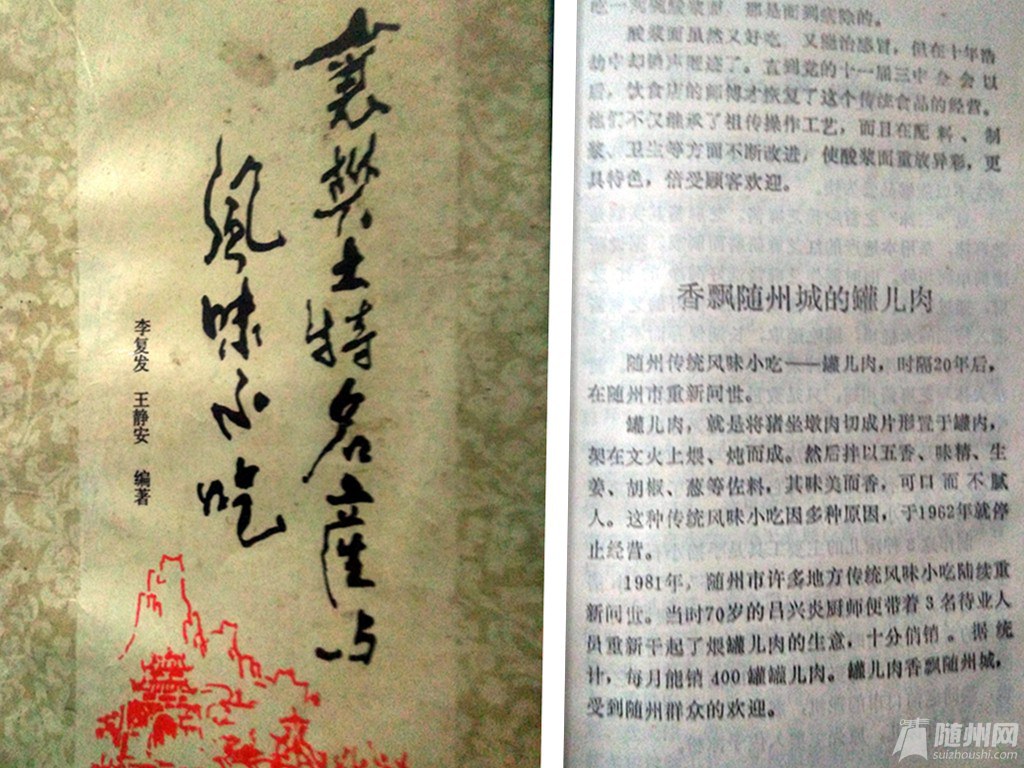 襄樊土特名产与
风味小吃
李复发 王静安 编著
吃一碗酸浆面，那是面到病除的。
酸浆面虽然又好吃，又能治感冒，但在十年浩
劫中却销声匿迹了。直到党的十一届三中全会以
后，饮食店的师傅才恢复了这个传统食品的经营。
他们不仅继承了祖传操作工艺，而且在配料、制
浆、卫生等方面不断改进，使酸浆面重放异彩，更
具特色，倍受顾客欢迎。
香飘随州城的罐儿肉
随州传统风味小吃——罐儿肉，时隔20年后，
在随州市重新问世。
罐儿肉，就是将猪坐墩肉切成片形置于罐内，
架在文火上煨、炖而成。然后拌以五香、味精、生
姜、胡椒、葱等佐料，其味美而香，可口而不腻
人。这种传统风味小吃因多种原因，于1962年就停
止经营。
1981年，随州市许多地方传统风味小吃陆续重
新问世。当时70岁的吕兴炎厨师便带着3名待业人
员重新干起了煨罐儿肉的生意，十分俏销。据统
计，每月能销400罐罐儿肉。罐儿肉香飘随州城，
受到随州群众的欢迎。
随州网
suizhoushi.com